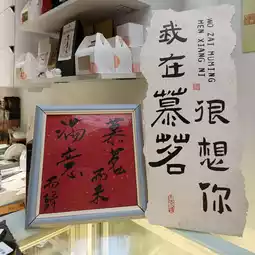 WO ZAI MUMING
HEN XIANG NI
我在慕茗
很想你
慕茗而来
满意而歸